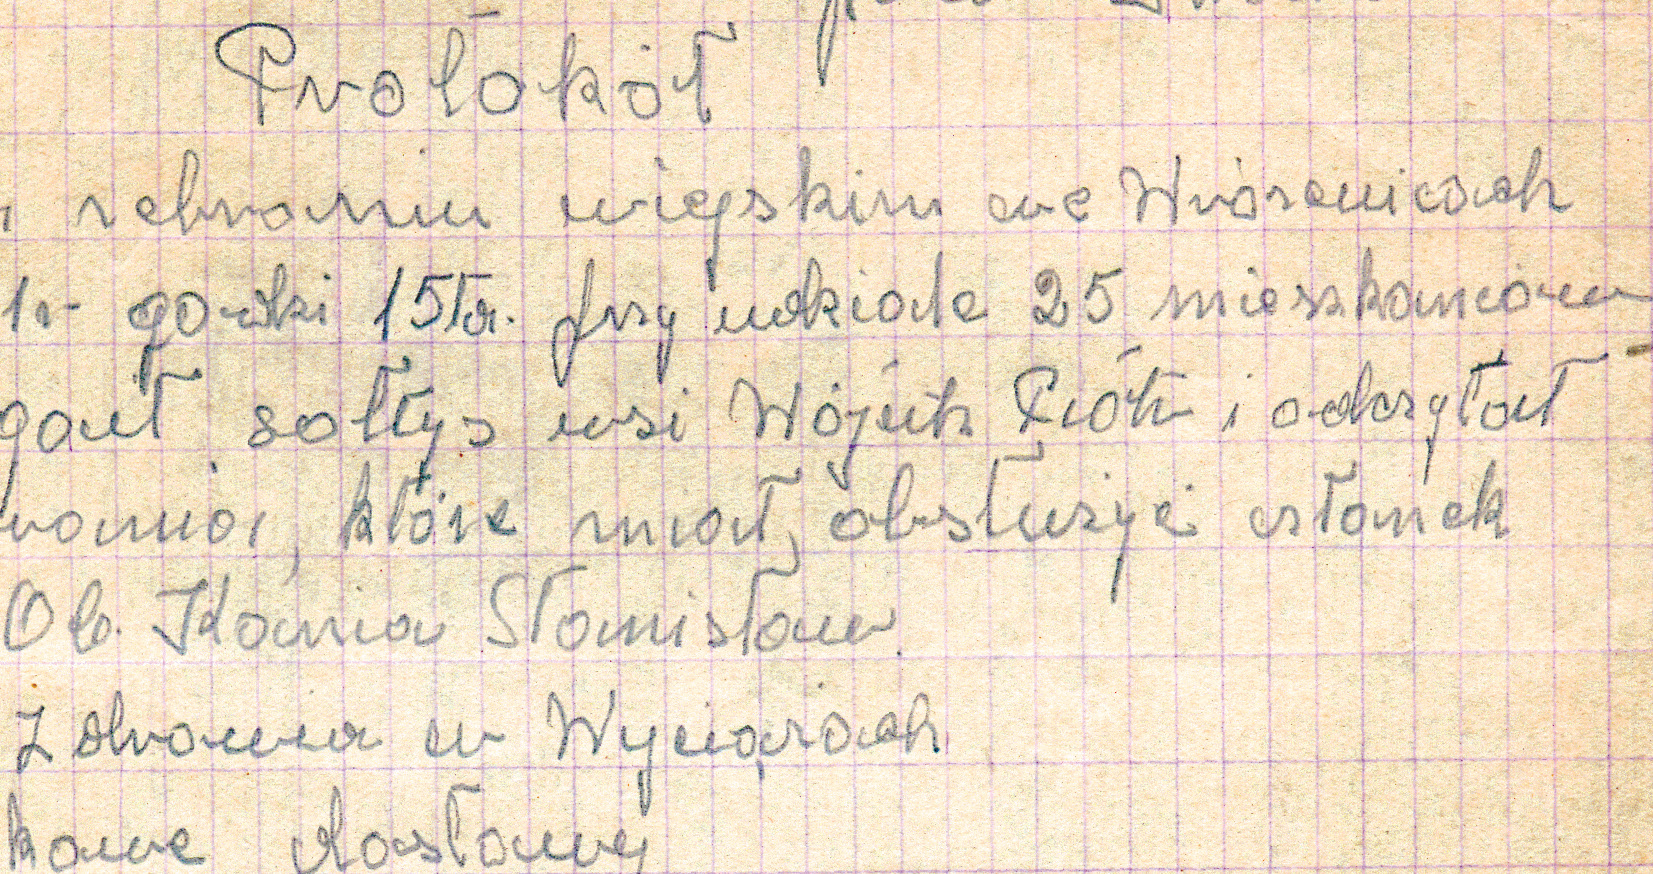 Protokół
zebraniu wiejskim we Wróżenicach
1r godzki 15ta. przy udziale 25 mieszkańców
gaił sołtys wsi Wójcik Piotr i odczytał
wania, które miał obsłużyć członek
Ob. Kania Stanisław.
Zdrowia w Wyciążach
kowe dostawy